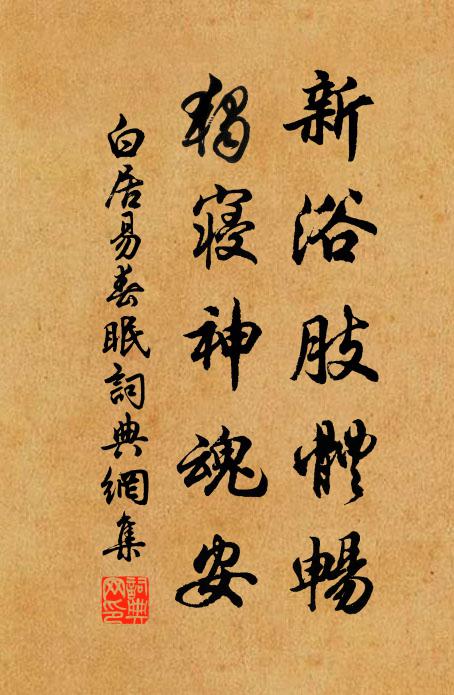 新浴肢體暢
獨寢神魂安
白居易春眠詞典網集
詞典网印